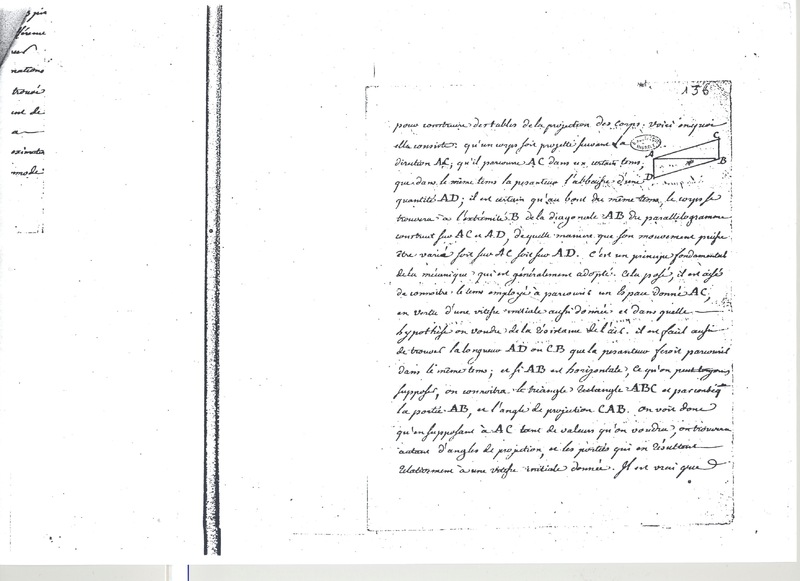 rees
nations
trouvé
ent de
a
mode
156
pour construire des tables de la projection des corps. voici en quoi
elle consiste: qu'un corps soit projetté suivant la
C
A
B
D
direction AC; qu'il parcoure AC dans un certain tems
que dans le même tems la pesanteur l'abbaisse d'une
quantité AD; il est certain qu'au bout du même tems, le corps se
trouvera à l'extrémité B de la diagonale AB du parallelogramme
construit sur AC et AD, de quelle maniere que son mouvement puisse
être varié soit sur AC soit sur AD. C'est un principe fondamental
de la mécanique qui est généralement adopté. Cela posé, il est aisé
de connoitre le tems employé à parcourir un espace donné AC,
en vertu d'une vitesse initiale aussi donnée et dans quelle
hypothèse on voudra de la résistance de l'air. il est facil aussi
de trouver la longueur AD ou CB que la pesanteur feroit parcourir
dans le même tems; et si AB est horizontale, ce qu'on peut toujours
supposer, on connoitra le triangle rectangle ABC et par conséqt
la portée AB, et l'angle de projection CAB. on voit donc
qu'en supposant à AC tant de valeurs qu'on voudra, on trouvera
autant d'angles de projection, et les portées qui en résultent
relativement à une vitesse initiale donnée. Il est vrai que